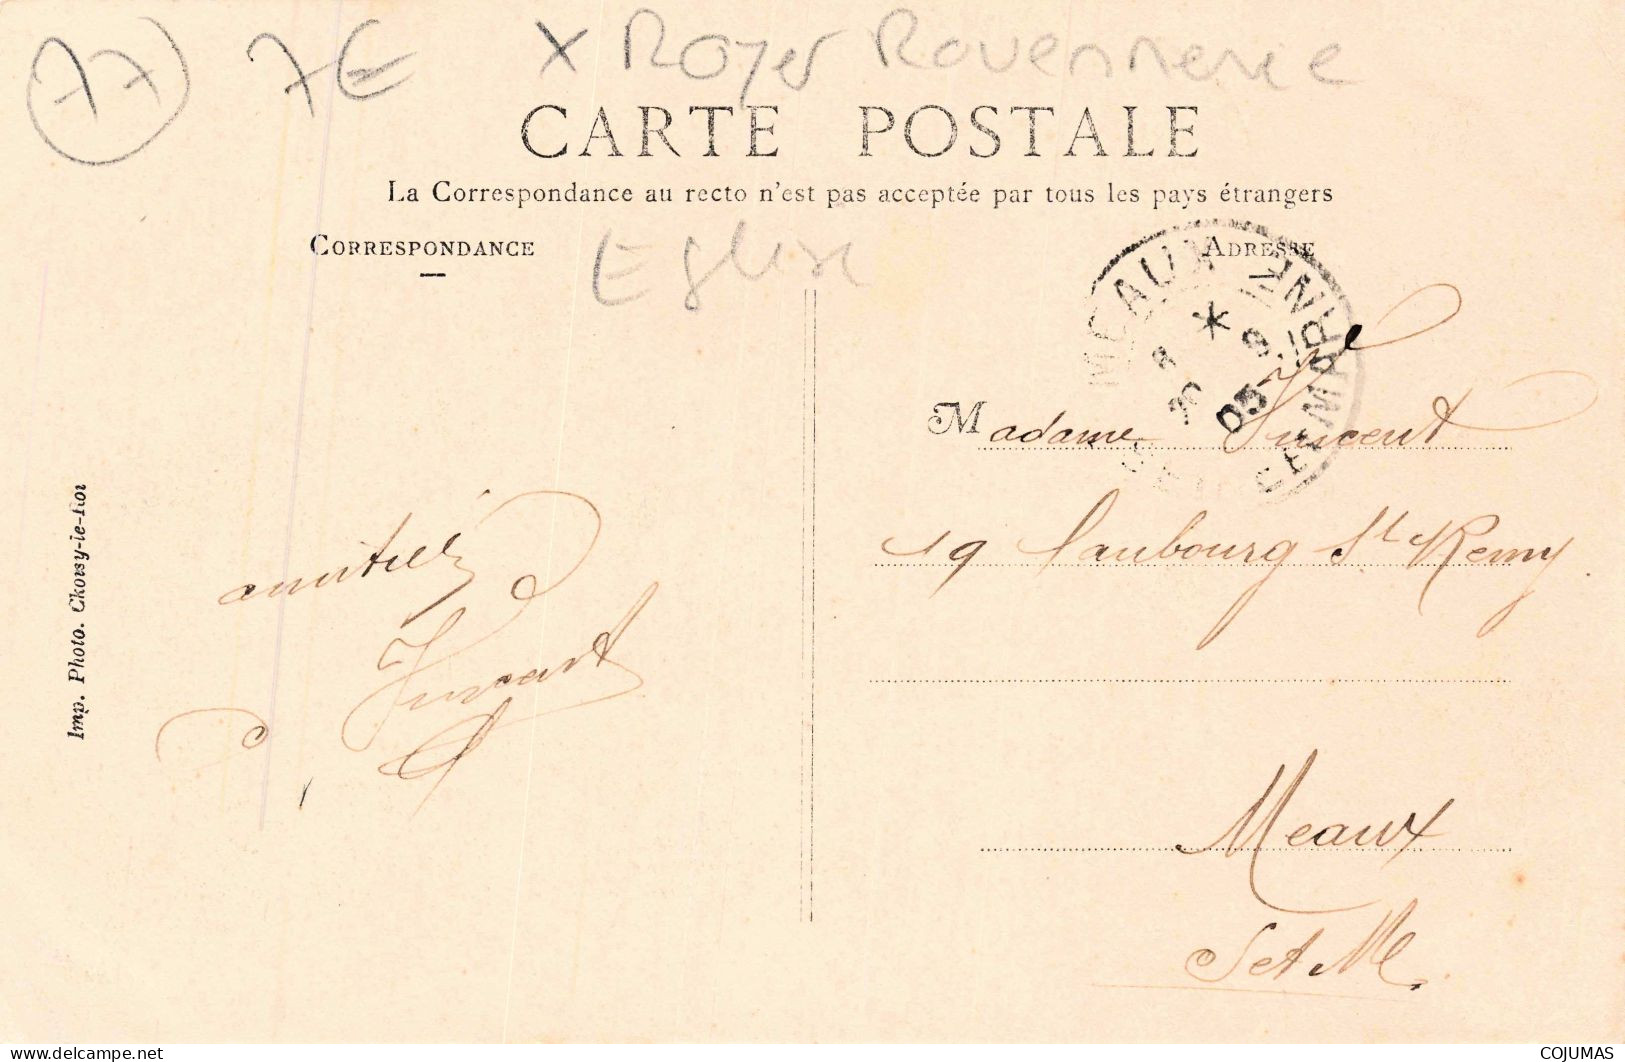 77 7€ x Royer Rouennerie
CARTE POSTALE
La Correspondance au recto n'est pas acceptée par tous les pays étrangers
CORRESPONDANCE
Eglise
ADRESSE
MEAUX
05
Madame Vincent
19 faubourg St Remy
Meaux
S et M
amitiés
Vincent
Imp. Photo. Choisy-le-Roi
COJUMAS